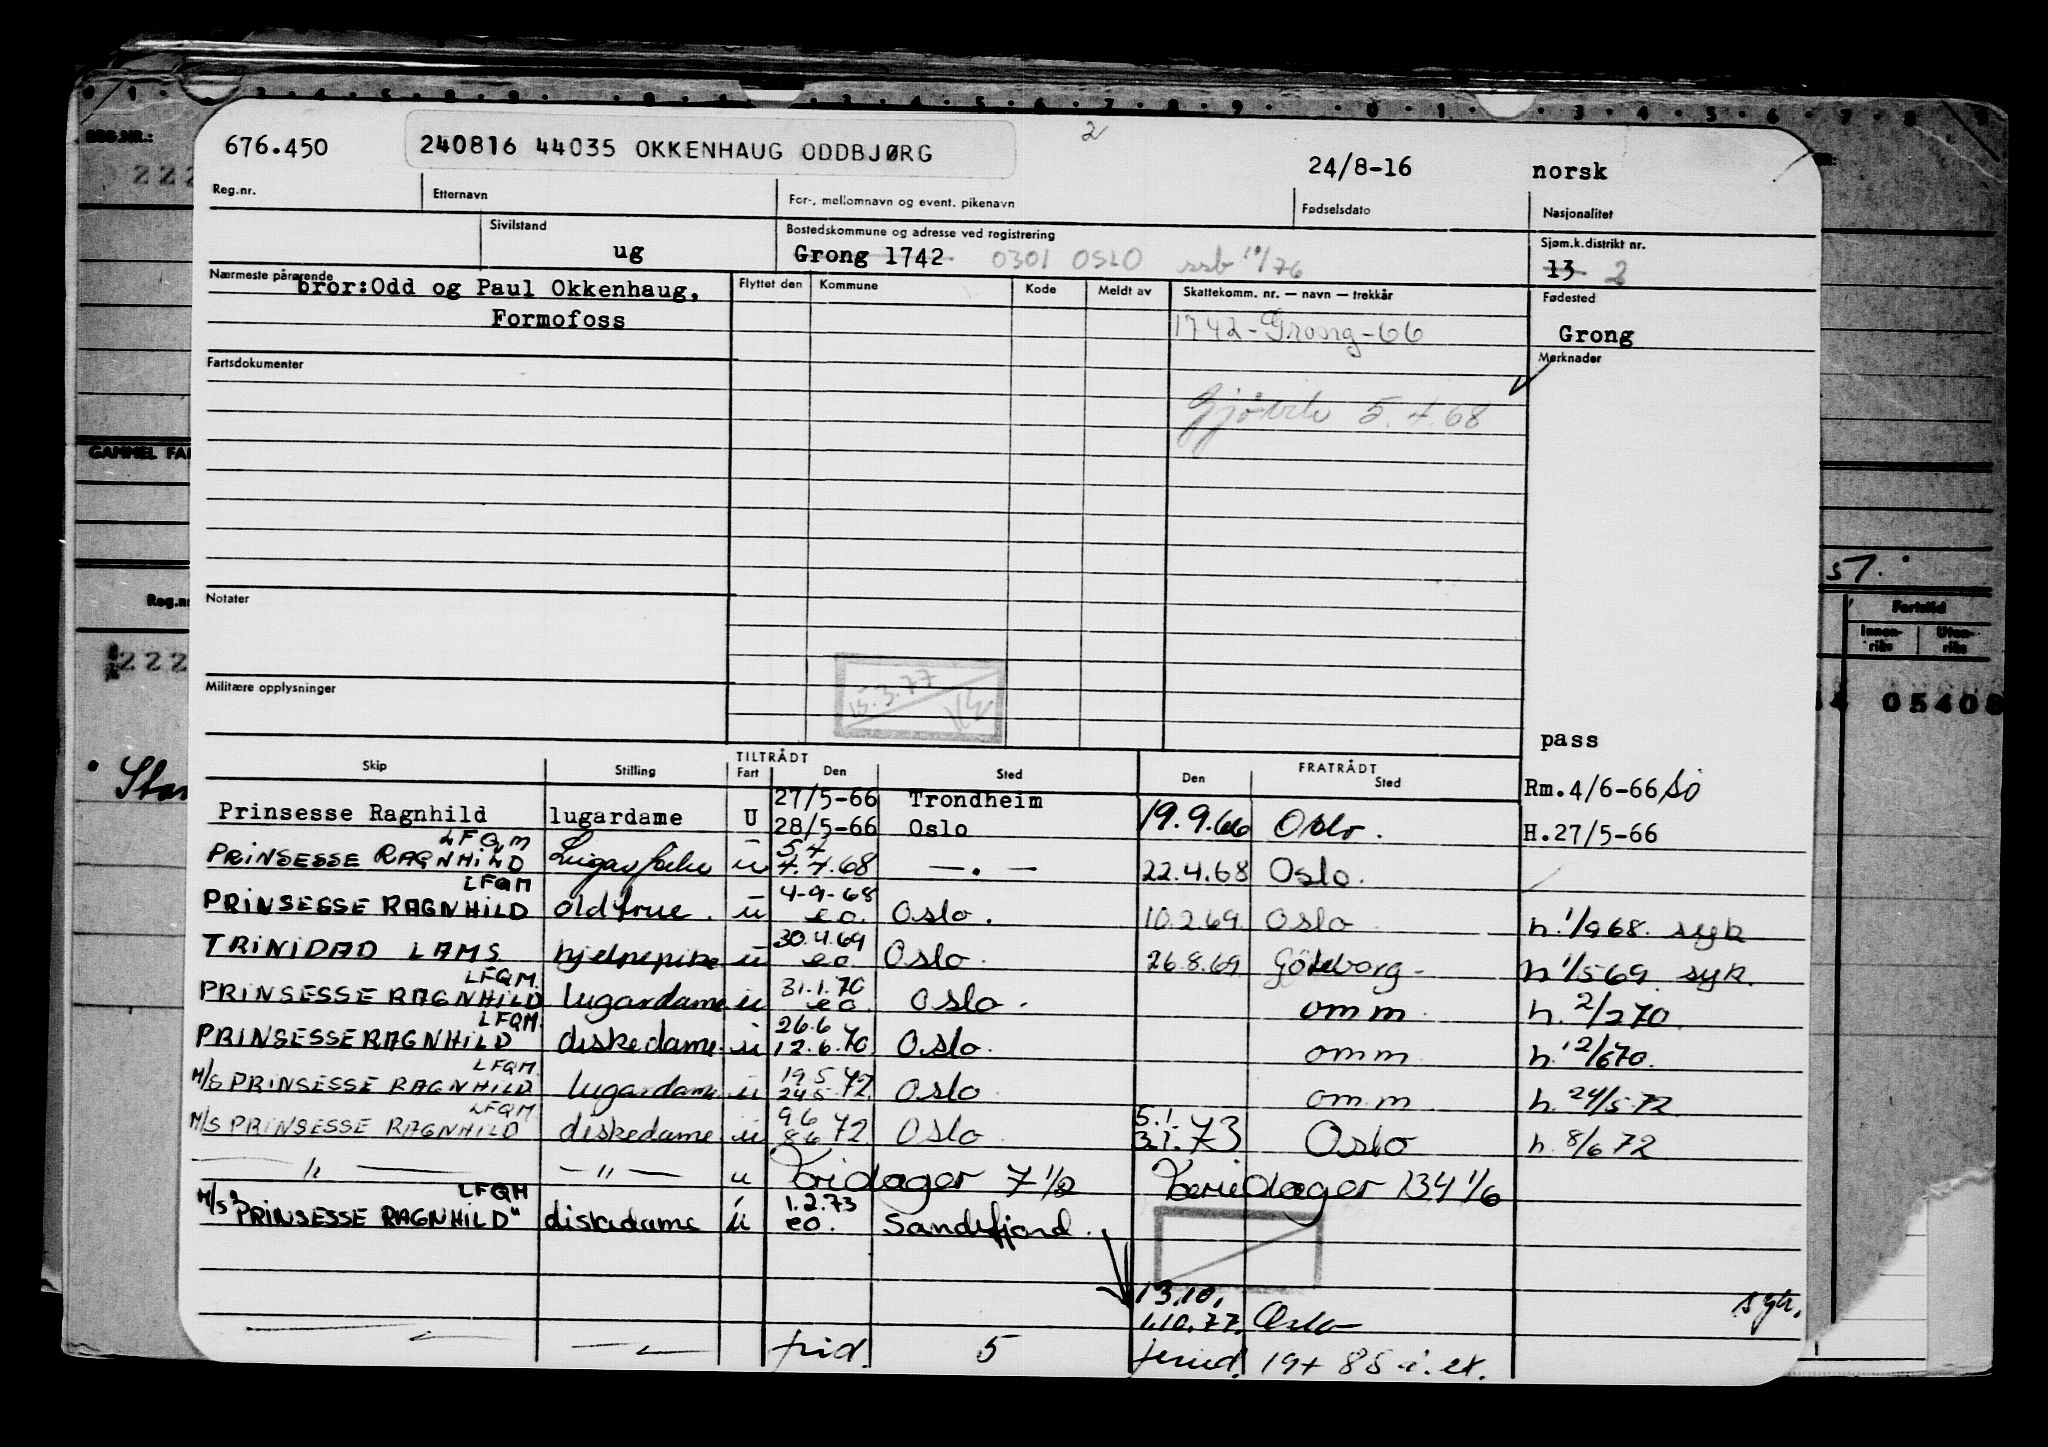 676.450 240816 44035 OKKENHAUG ODDBJØRG 2 24/8-16 norsk
Reg.nr. Etternavn For-, mellomnavn og event. pikenavn Fødselsdato Nasjonalitet
Sivilstand Bostedskommune og adresse ved registrering Sjøm.k.distrikt nr.
ug Grong 1742 0301 OSLO ssb 10/76 13 2
Nærmeste pårørende Flyttet den Kommune Kode Meldt av Skattekomm. nr. — navn — trekkår Fødested
bror:Odd og Paul Okkenhaug,
Formofoss 1742-Grong-66 Grong
Fartsdokumenter Merknader
Gjøvik 5.4.68
GAMMEL FA
Notater
Reg.n
Fartstid
Innen-riks Uten-riks
222
15.3.77
Militære opplysninger
05408
pass
TILTRÅDT FRATRÅDT
Skip Stilling Fart Den Sted Den Sted
Rm.4/6-66
27/5-66 Trondheim
Prinsesse Ragnhild lugardame U 28/5-66 Oslo 19.9.66 Oslo. H.27/5-66
LFQM
PRINSESSE RAGNHILD u 4.4.68 — . — 22.4.68 Oslo.
LFQM 4-9-68
PRINSESSE RAGNHILD oldfrue. u eo. Oslo. 10.2.69. Oslo h. 1/9 68. syk
30.4.69
TRINIDAD LAMS hjelpepike u eo Oslo. 26.8.69 Göteborg- h 1/5 69. syk.
LFQM. 31.1.70
PRINSESSE RAGNHILD lugardame u eo. Oslo. omm h. 2/2 70.
LFQM. 26.6
PRINSESSE RAGNHILD diskedame. u 12.6.70. Oslo. omm h. 12/6 70.
LFQM. 19.5
M/S PRINSESSE RAGNHILD lugardame u 24.5.72. Oslo omm. h. 24/5 72
LFQM 9.6 5.1.
M/S PRINSESSE RAGNHILD diskedame u 8.6 72. Oslo 3.1.73 Oslo h 8/6 72
— " — — " — u Fridager 7 1/2 Feriedager 134 1/6
LFQM 1.2.73
M/S "PRINSESSE RAGNHILD" diskedame u eo. Sandefjord.
13.10.
1.10.77. Oslo
frid. 5 feried. 19 + 85 i. et.